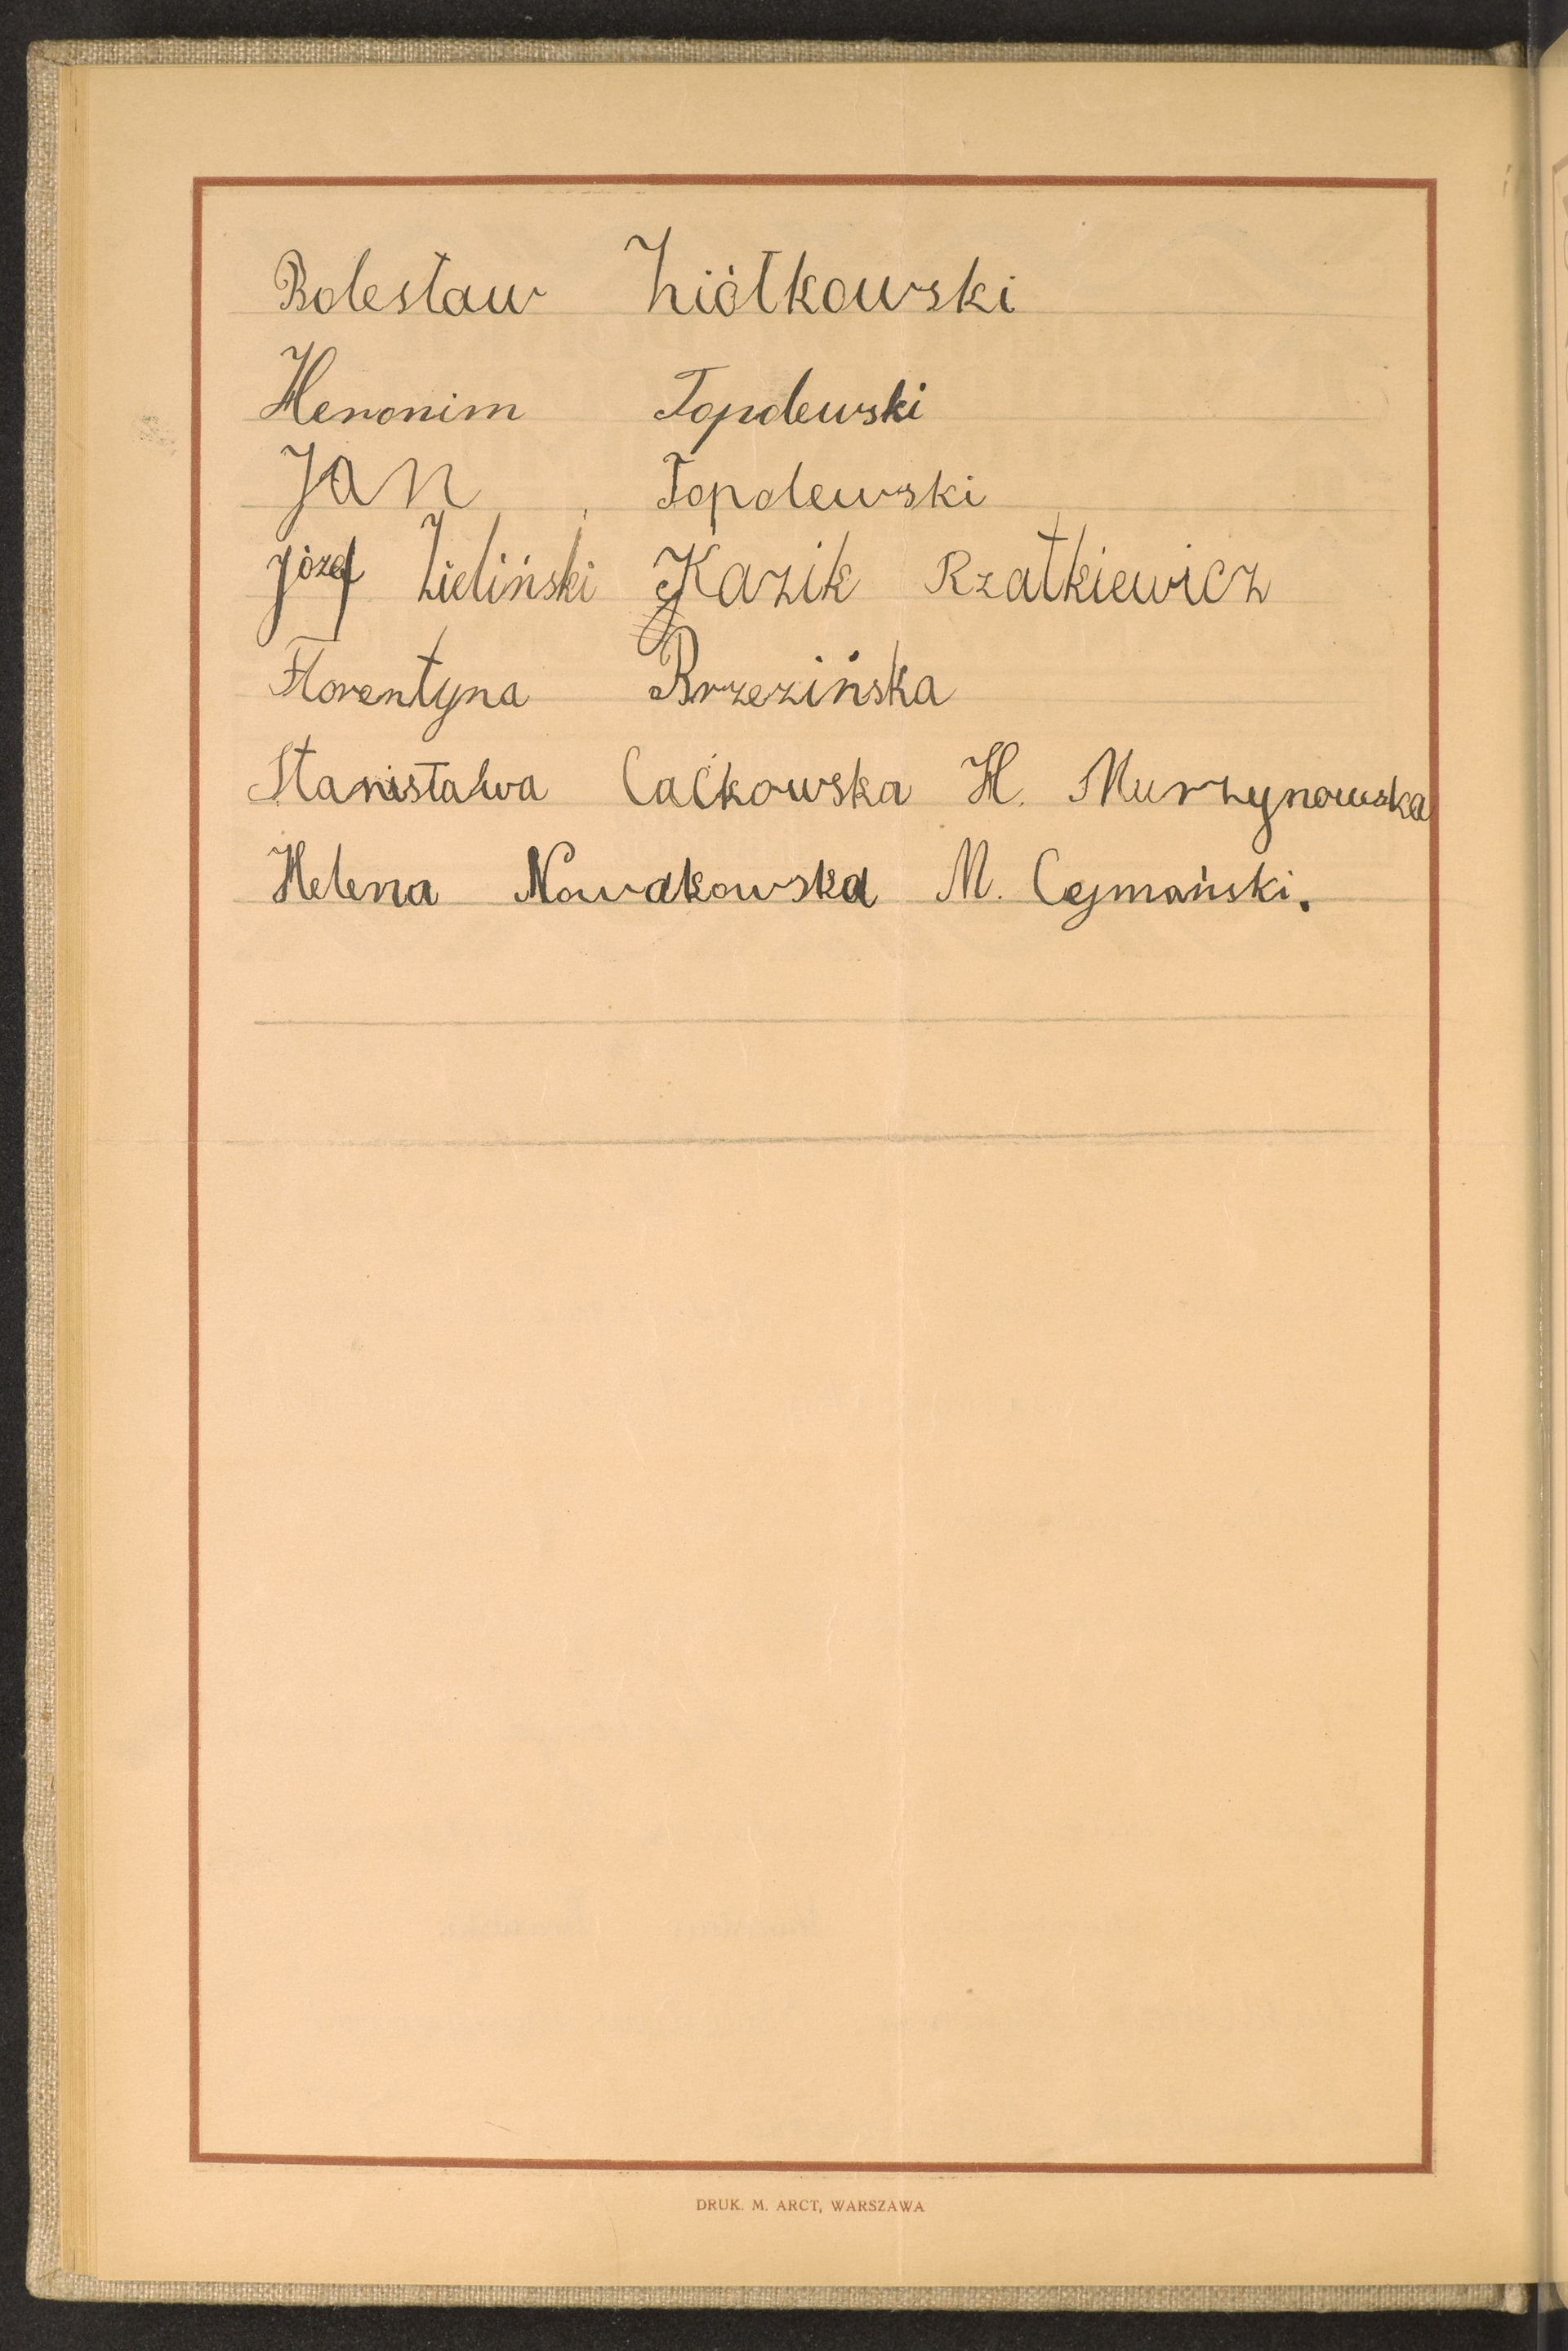 Bolesław Ziółkowski
Heronim Topolewski
Jan Topolewski
Józef Zieliński Kazik Rzatkiewicz
Florentyna Brzezińska
Stanisława Caćkowska H. Murzynowska
Helena Nowakowska M. Cejmański.
DRUK. M. ARCT, WARSZAWA